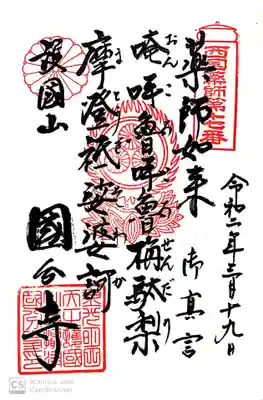 西国薬師第十七番
令和二年三月十九日
薬師如来 御真言
おん ころ ころ せんだり
唵呼魯呼魯栴駄梨
まとうぎ そわか
摩澄祇娑婆訶
護國山 國分寺
CS CamScanner